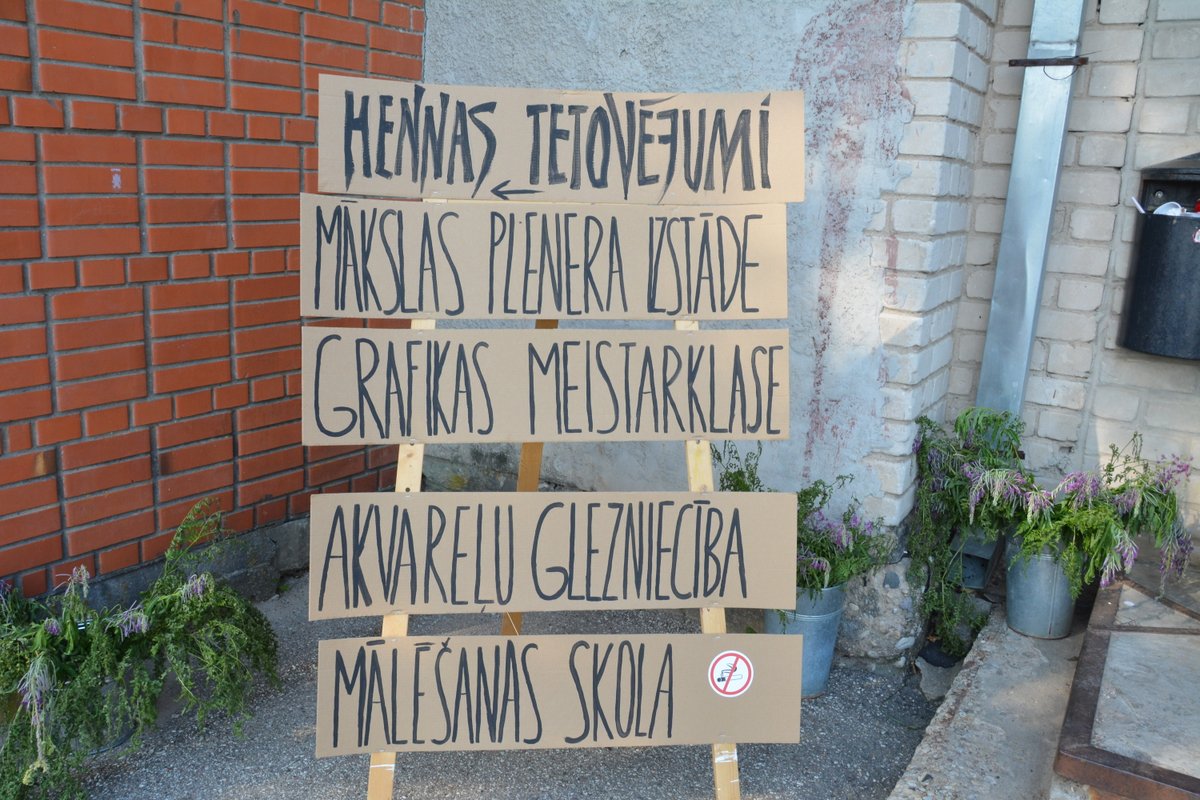 HENNAS TETOVĒJUMI
MĀKSLAS PLENERA IZSTĀDE
GRAFIKAS MEISTARKLASE
AKVAREĻU GLEZNIECĪBA
MĀLĒŠANAS SKOLA